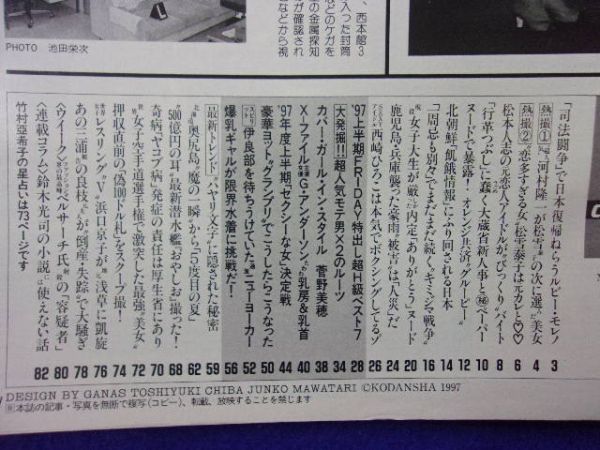 PHOTO 池田栄次
西本館3
入った封筒
の金属探知
どのケガを
が確認され
などから視
「司法闘争」で日本復帰ねらうルビー・モレノ 3
熱撮① "河村隆一"が松雪の次に選んだ美女 4
熱撮② 恋多すぎる女"松雪泰子はヌガと♡♡ 6
松本人志の元恋人アイドルが"びっくり"バイト 8
「行革つぶし」に蠢く大蔵省新人事と㊙ペーパー 10
ヌードで暴露!オレンジ共済"グルーピー" 12
北朝鮮"飢餓情報"にふり回される日本 14
「一周忌も別々」でまたまた続く"キミジマ戦争" 16
女子大生が厳しい内定「ありがとう」ヌード 20
鹿児島・兵庫襲った豪雨"被害"は「人災」だ 24
西崎ひろこは本気でボクシングしてるゾ 26
'97上半期FRIDAY特出し超H級ベスト7 28
大発掘!!超人気モテ男×2のルーツ 34
カバー・ガール・イン・スタイル 菅野美穂 38
Xーファイル G・アンダーソンの乳房&乳首 40
'97年度上半期「セクシーな女」決定戦 44
豪華ヨットがグランプリでこうしたらこうなった 50
伊良部を待ちうけていたニューヨーカー 52
爆乳ギャルが限界水着に挑戦だ! 56
最新トレンド「ハヤリ文字」に隠された秘密 59
北海道奥尻島「魔の一瞬」から「5度目の夏」 62
"500億円の耳"最新潜水艦「おやしお」撮った! 68
奇病「ヤコブ病」発症の責任は厚生省にあり 70
女子空手道選手権で激突した最強"美女" 72
押収直前の「偽100ドル札」をスクープ撮! 74
レスリング"V"浜口京子が浅草に凱旋 76
あの三浦の良枝が「倒産・失踪」で大騒ぎ 78
〈ウイークエンダー〉ベルサーチ氏の「容疑者」 80
〈連載コラム〉鈴木光司の小説に使えない話 82
竹村亜希子の星占いは73ページです
DESIGN BY GANAS TOSHIYUKI CHIBA JUNKO MAWATARI ©KODANSHA 1997
本誌の記事・写真を無断で複写(コピー)、転載、放映することを禁じます